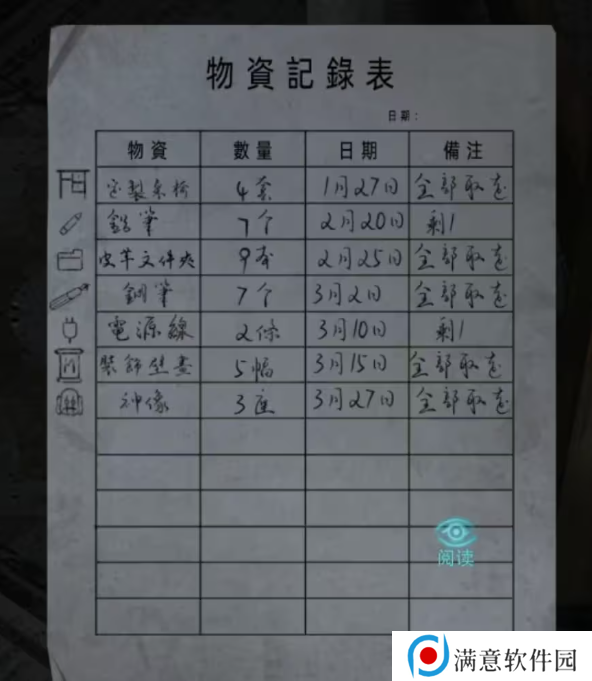 物資記錄表
日期：
物資 數量 日期 備注
定製桌椅 4套 1月27日 全部取走
鉛筆 7个 2月20日 剩1
皮革文件夾 9本 2月25日 全部取走
鋼筆 7个 3月2日 全部取走
電源線 2條 3月10日 剩1
裝飾壁畫 5幅 3月15日 全部取走
神像 3座 3月27日 全部取走
阅读
满意软件园